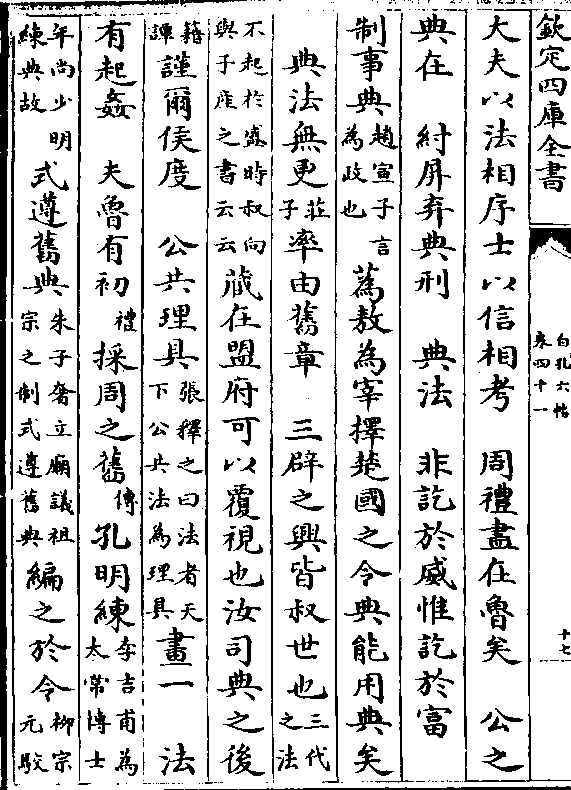 欽定四庫全書
白孔六帖
卷四十一
十七
大夫以法相序士以信相考　周禮盡在魯矣　公之
典在　紂屏弃典刑　典法　非訖於威惟訖於富
制事典趙宣子言為政也蔿敖為宰擇楚國之令典能用典矣
典法無更莊子率由舊章　三辟之興皆叔世也三代之法
不起於盛時叔向與子産之書云云藏在盟府可以覆視也汝司典之後
籍譚謹爾侯度　公共理具張釋之曰法者天下公共法為理具畫一　法
有起姦　夫魯有初禮採周之舊傳孔明練李吉甫為太常博士
年尚少明練典故式遵舊典朱子奢立廟議祖宗之制式遵舊典編之於令柳宗元駁